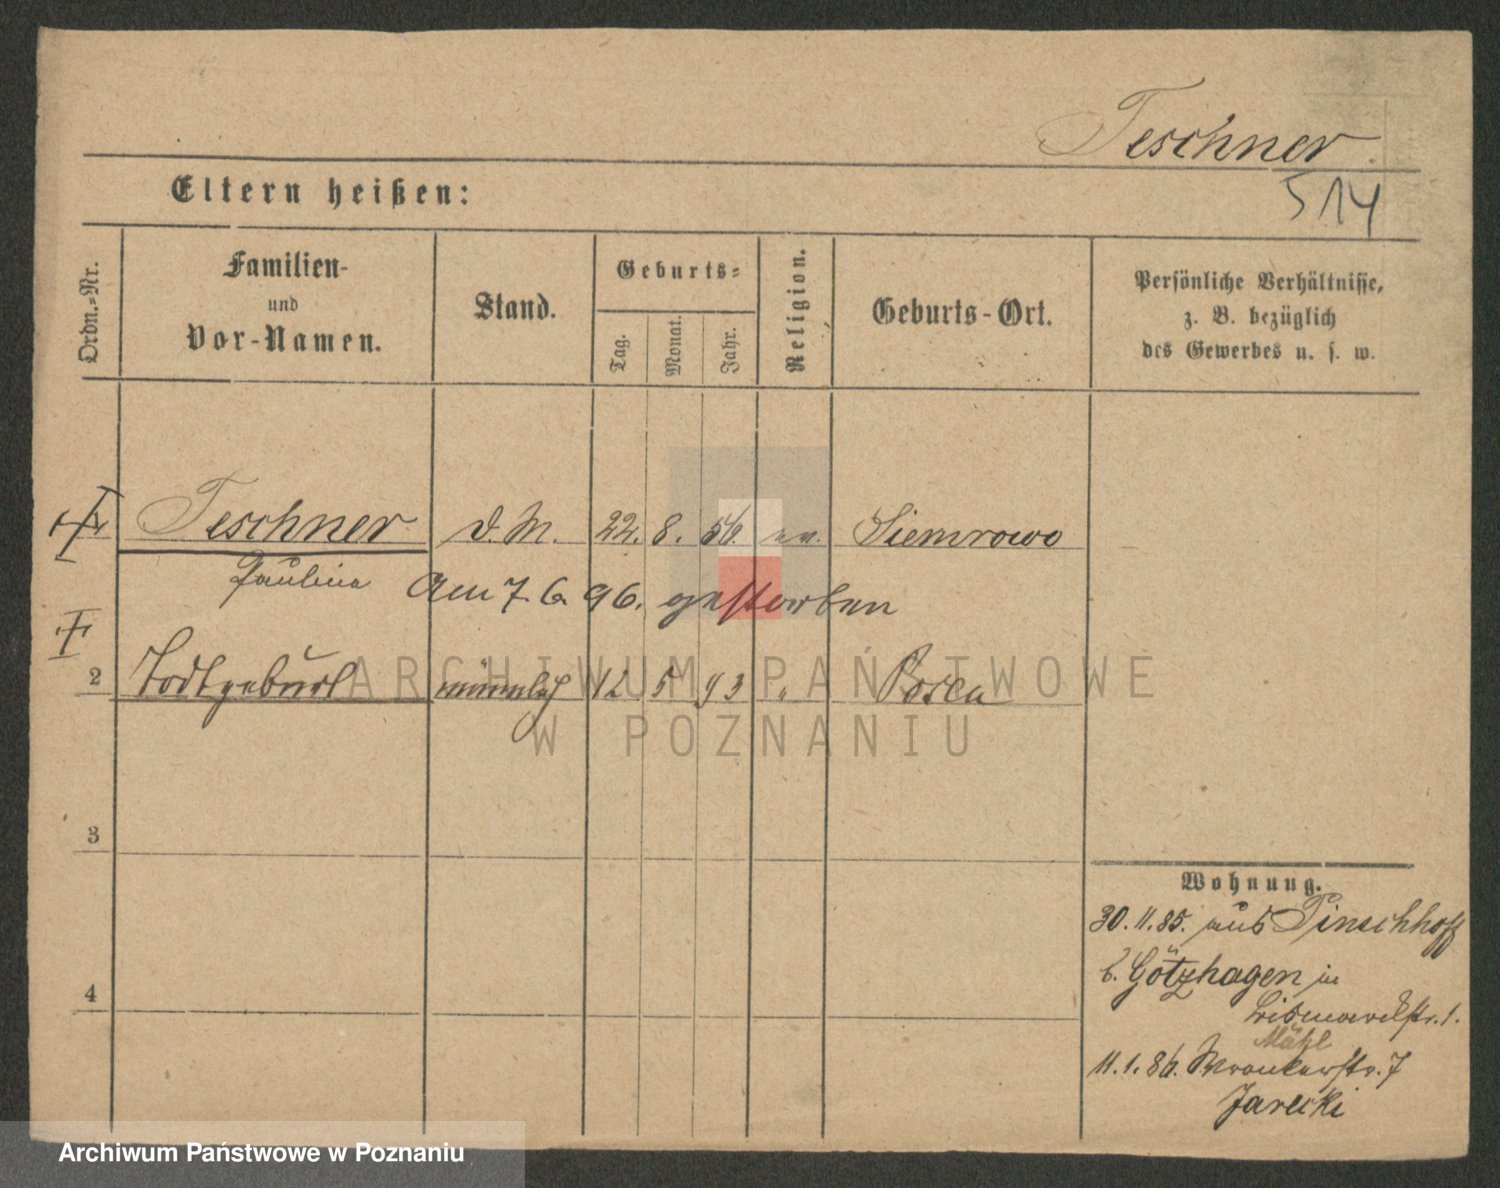 Teschner
514
Eltern heißen:
Ordn.-Nr.
Familien-
und
Vor-Namen.
Stand.
Geburts-
Tag.
Monat.
Jahr.
Religion.
Geburts-Ort.
Persönliche Verhältnisse,
z. B. bezüglich
des Gewerbes u. s. w.
Teschner D. M. 22. 8. 56. ev. Siemrowo
Paulina Am 7. 6. 96. gestorben
2 Todtgeburt männlich 12 5 93 " Posen
3
4
Wohnung.
30. 11. 85. aus Pinschhoff
b. Götzhagen in
Bismarckstr. 1.
11. 1. 86. Wronkerstr. 7
Jarecki
ARCHIWUM PAŃSTWOWE
W POZNANIU
Archiwum Państwowe w Poznaniu